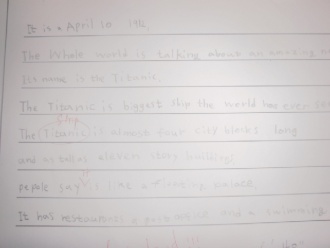 It is a April 10 191
The Whole world is talking about an amazing
Its name is the Titanic.
The Titanic is biggest ship the world has ever
Ship
The Titanic is almost four city blocks long
and as tall as eleven story building
pepole say it is like a floating palace.
It has restaurants a and a swimming